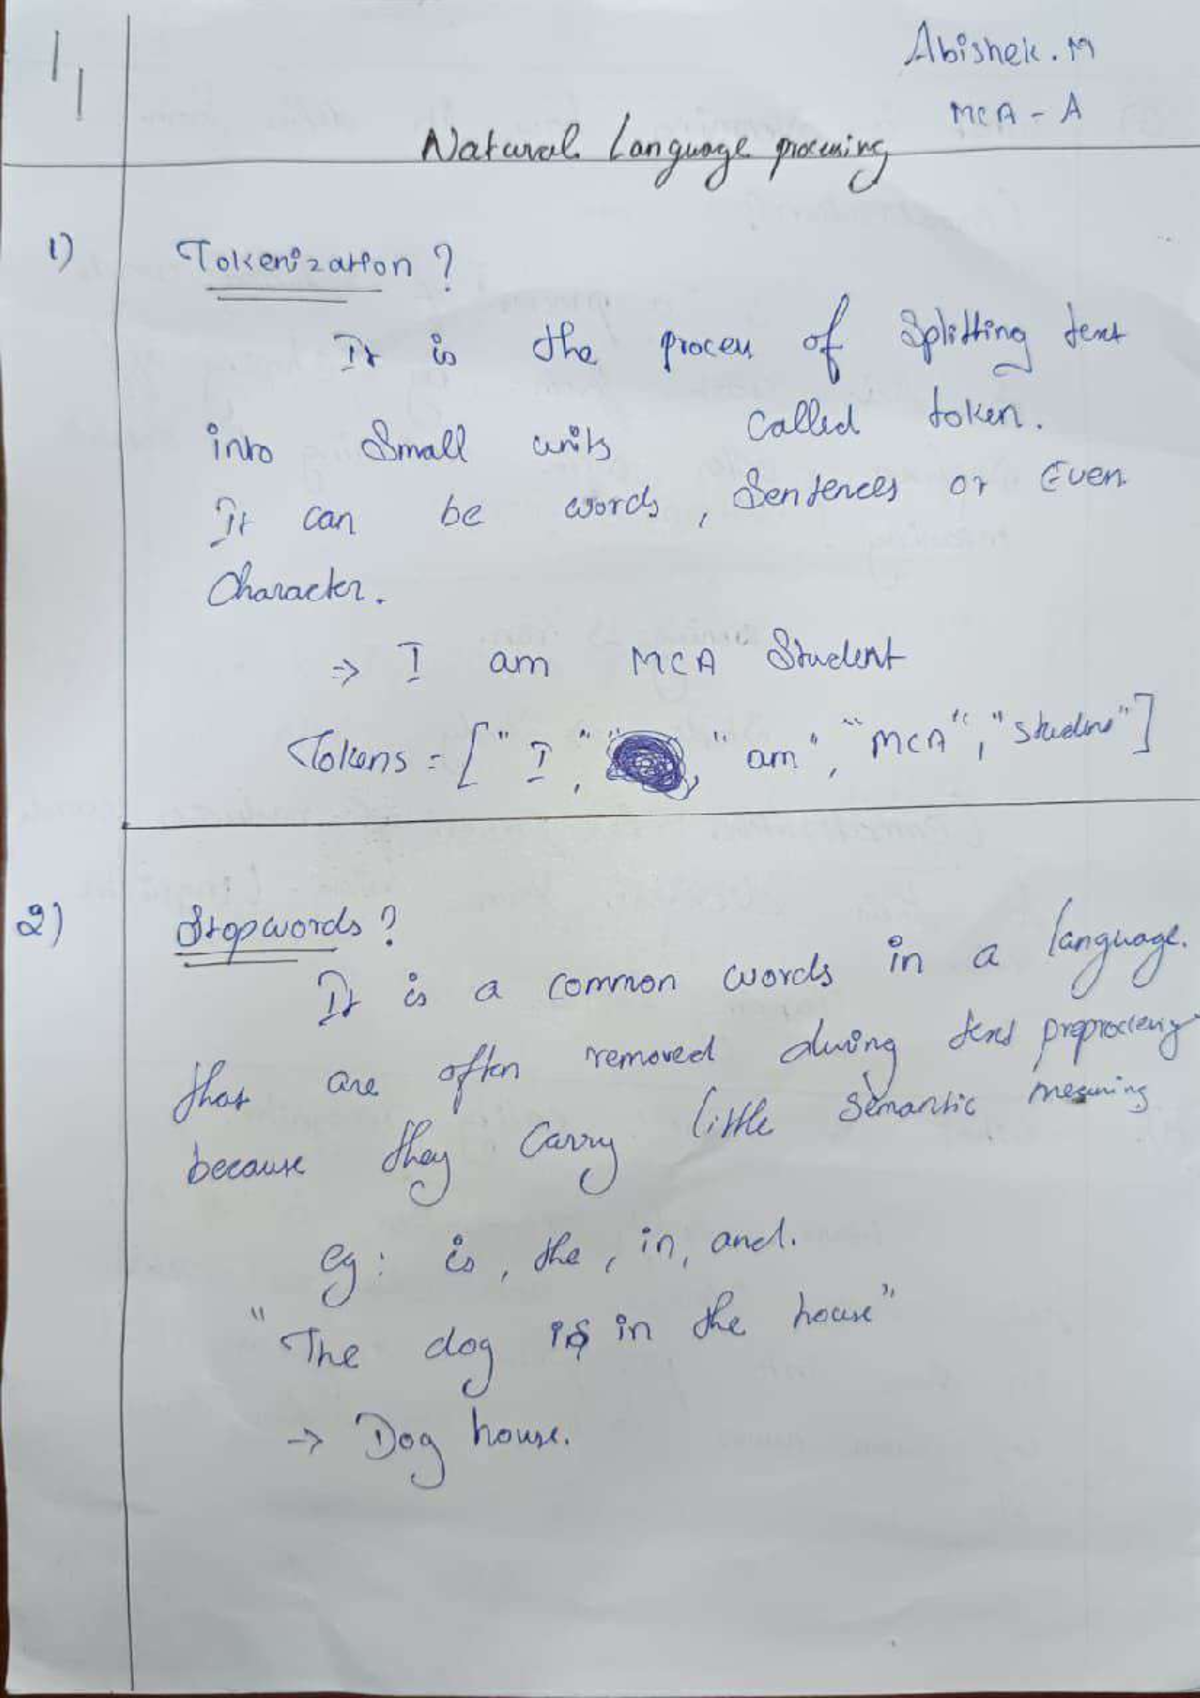 Abishek.M
MCA - A
Natural Language processing
1)
Tokenization ?
It is the process of Splitting text
into Small units called token.
It can be words, Sentences or Even
Character.
⇒ I am MCA Student
Tokens = [" I ", " am ", "MCA", "Student"]
2)
Stopwords ?
It is a common words in a language.
that are often removed during text preprocessing
because they Carry little Semantic meaning
eg: is, the, in, and.
"The dog is in the house"
→ Dog house.